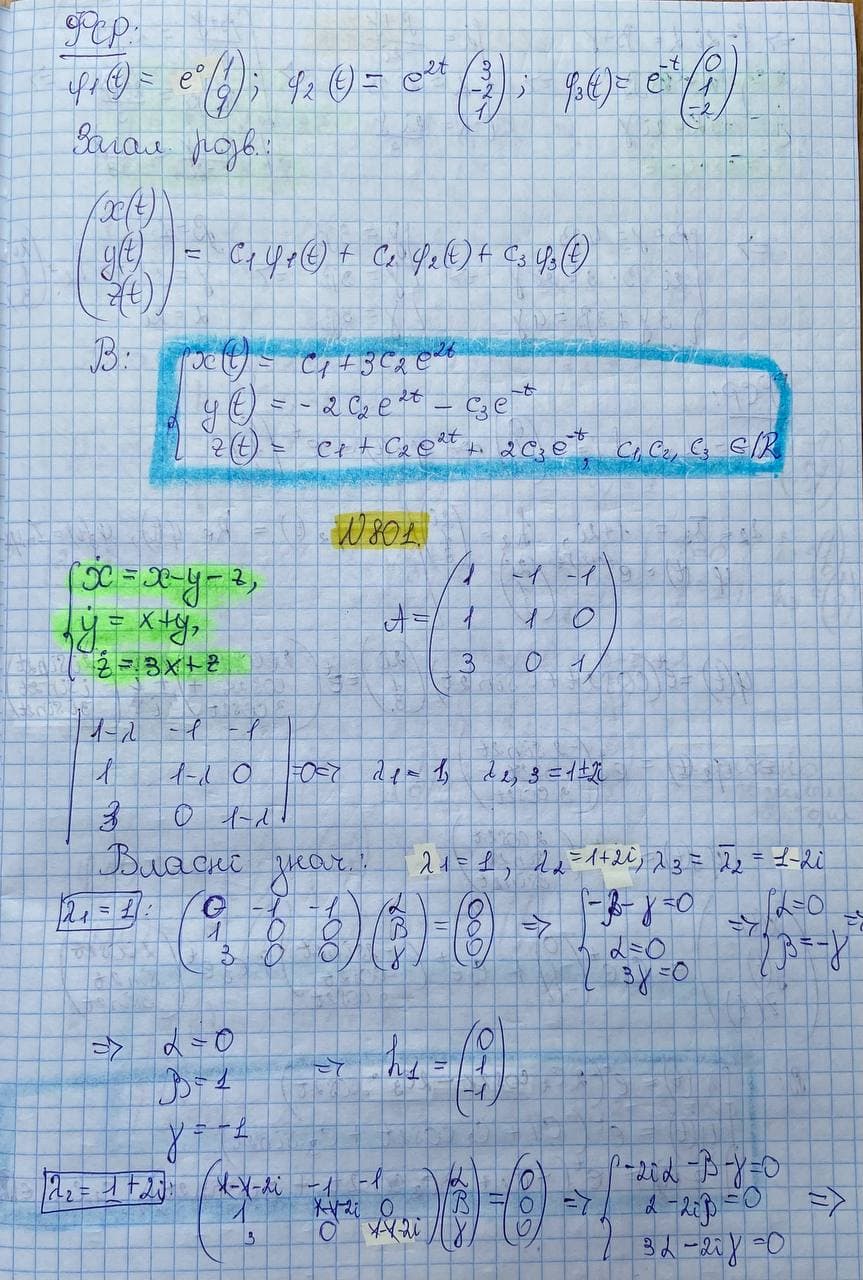 ФСР:
φ1(t) = e⁰(1 0 1); φ2(t) = e^{2t}(3 -2 1); φ3(t) = e^{-t}(0 1 -2)
Загал. розв.:
(x(t) y(t) z(t)) = c1φ1(t) + c2φ2(t) + c3φ3(t)
В: {x(t) = c1 + 3c2e^{2t}
y(t) = -2c2e^{2t} - c3e^{-t}
z(t) = c1 + c2e^{2t} + 2c3e^{-t}, c1, c2, c3 ∈ IR
N801.
{ẋ = x-y-z,
ẏ = x+y,
ż = 3x+z
A = (1 -1 -1
1 1 0
3 0 1)
|1-λ -1 -1
1 1-λ 0
3 0 1-λ| = 0 => λ1 = 1, λ2,3 = 1±2i
Власні знач.: λ1 = 1, λ2 = 1+2i, λ3 = λ̄2 = 1-2i
λ1 = 1: (0 -1 -1
1 0 0
3 0 0)(α β γ) = (0 0 0) => {-β-γ=0
α=0
3γ=0
=> {α=0
β=-γ =>
=> α = 0
β = 1
γ = -1
=> h1 = (0 1 -1)
λ2 = 1+2i: (1-1-2i -1 -1
1 1-1-2i 0
3 0 1-1-2i)(α β γ) = (0 0 0) => {-2iα-β-γ=0
α-2iβ=0
3α-2iγ=0 =>